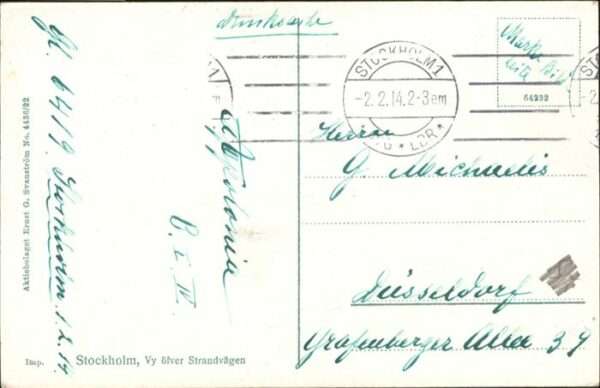 Drucksache
Marke Bild-
seite
64232
STOCKHOLM 1
-2.2.14.2-3em
LBR
Herrn
G. Michaelis
Düsseldorf
Grafenberger Allee 39
Apolonia
Stockholm 1.2.14
Aktiebolaget Ernst G. Svanström No. 4436/22
Imp. Stockholm, Vy öfver Strandvägen